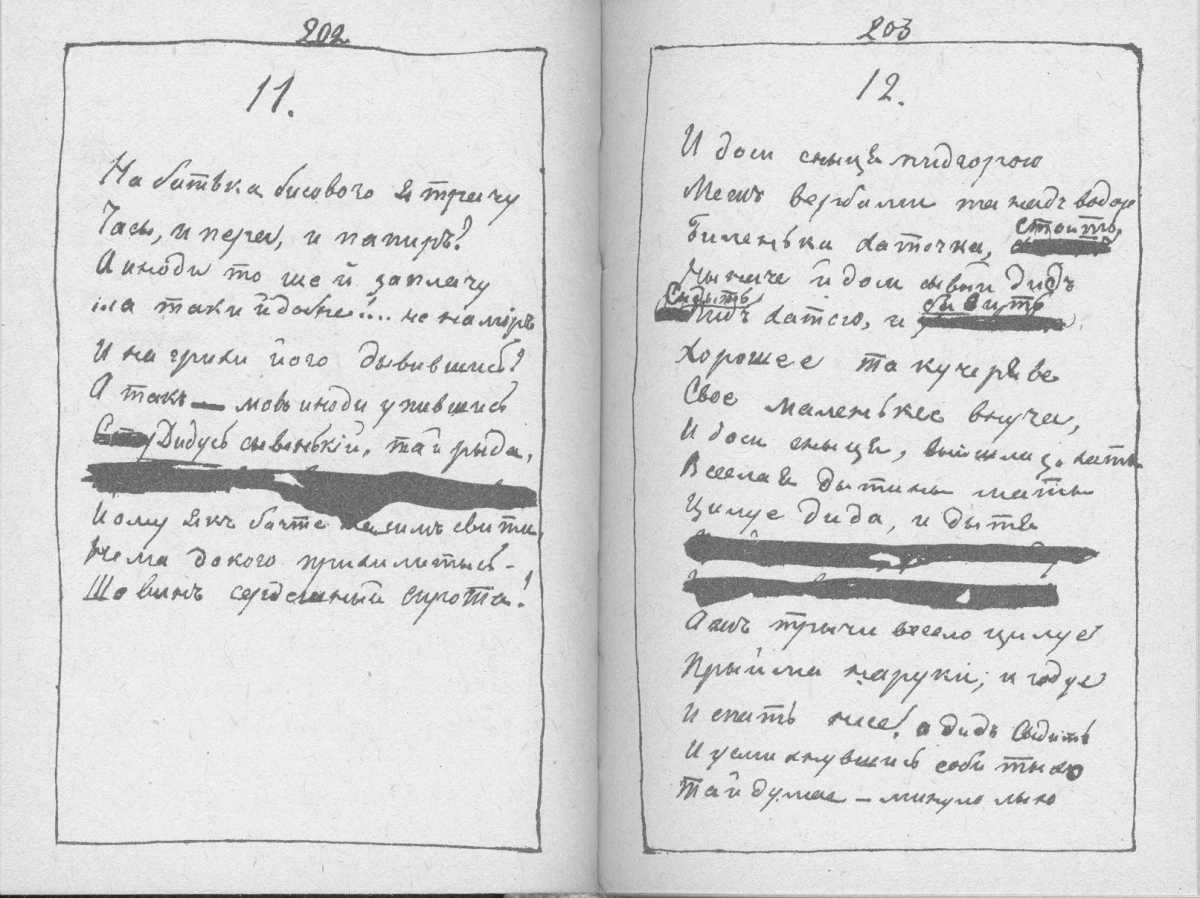 202
11.
На батька бисового я трачу
Часы, и пера, и папиръ?
А иноди то ще й заплачу
таки й добре.... не на миръ
И на грихи його дывившись?
А такъ — мовъ иноди упившись
Дидусь сывенькій, тай рыда,
Йому якъ бачте симъ свити,
Нема до кого прихилитысь —
Що винъ сердешный сирота!
203
12.
И доси сныця пидгорою
Межъ вербами та надъ водою
Биленька хаточка, стоитъ,
Нынче й доси сывый дидъ
Сыдыть
Пидъ хатою, и бавить
Хорошее та кучеряве
Свое маленькее внуча,
И доси сныця, выйшла з хаты
Веселая дытыны маты
Цилує дида, и дытя
Ажъ трычи весело цилує
Прыйма на руки, и годує
И спать несе, а дидъ сыдить
И усмихнувшись соби тыхо
Тай думає — минуло лыхо